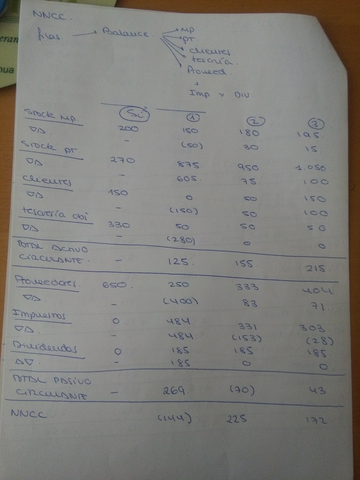 NNCC.
Balance
MP
PT
clientes
tesorería.
Proveed
+
Imp y Div
Sic 1 2 3
Stock MP 200 150 180 195
- (50) 30 15
Stock PT 270 875 950 1.050
- 605 75 100
Clientes 150 0 50 150
- (150) 50 100
Tesorería obj 330 50 50 50
- (280) 0 0
TOTAL ACTIVO
CIRCULANTE - 125 155 215
Proveedores 650 250 333 404
- (400) 83 71
Impuestos 0 484 331 303
- 484 (153) (28)
Dividendos 0 185 185 185
- 185 0 0
TOTAL PASIVO
CIRCULANTE - 269 (70) 43
NNCC (144) 225 172